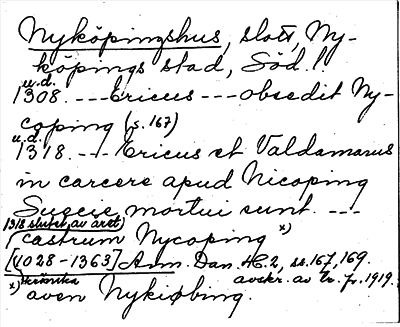 Nyköpingshus, slott, Ny-
köpings stad, Söd.l.
u.d.
1308. --- Ericus --- obsedit Ny-
coping (s. 167)
u.d.
1318. --- Ericus et Valdamarus
in carcere apud Nicoping
Suecie mortui sunt. ---
1318 slutet av året)
castrum Nycoping x)
[1028-1363] Ann. Dan. HC.2, ss. 167, 169.
Krönika
avskr. av Fr. 1919.
x) även Nykiøbing.